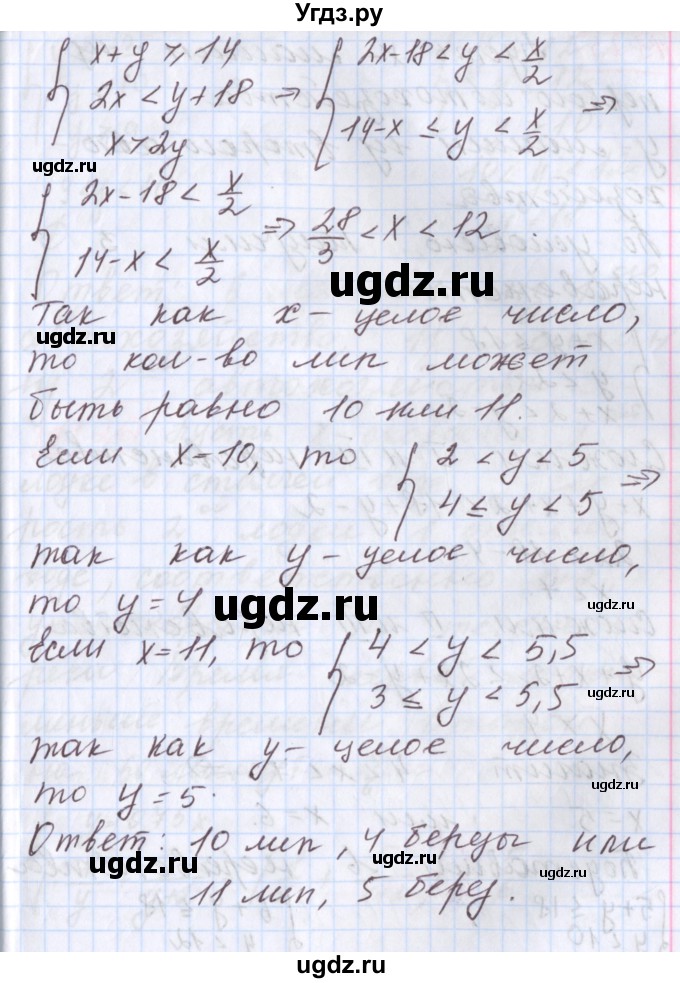 Угдз.ру
{ x+y ⩾ 14
2x < y+18
x > 2y ⇒ { 2x-18 < y < x/2
14-x ≤ y < x/2 ⇒
ugdz.ru
ugdz.ru
ugdz.ru
{ 2x-18 < x/2
14-x < x/2 ⇒ 28/3 < x < 12.
ugdz.ru
ugdz.ru
Так как x - целое число,
то кол-во лип может
быть равно 10 или 11.
ugdz.ru
Если x=10, то { 2 < y < 5
4 ≤ y < 5 ⇒
так как y - целое число,
то y = 4
ugdz.ru
ugdz.ru
Если x=11, то { 4 < y < 5,5
3 ≤ y < 5,5 ⇒
ugdz.ru
так как y - целое число,
то y = 5.
Ответ: 10 лип, 4 березы или
ugdz.ru
ugdz.ru
ugdz.ru
11 лип, 5 берез.
ugdz.ru